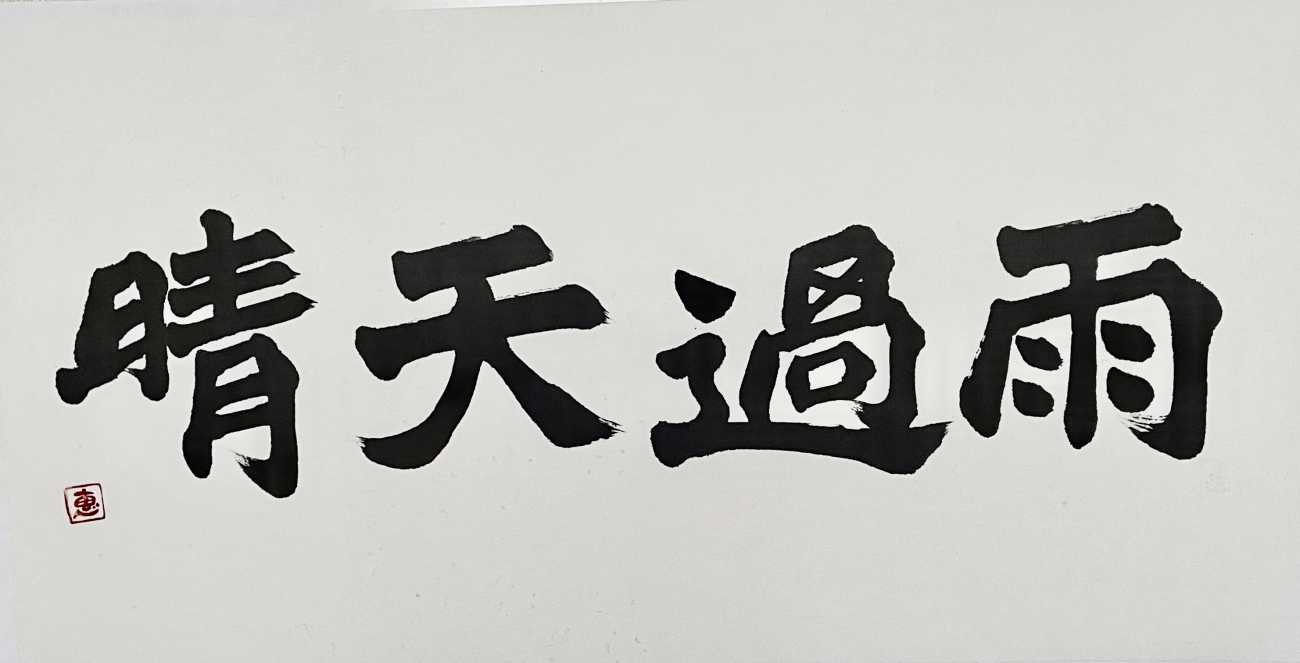 雨過天晴
惠